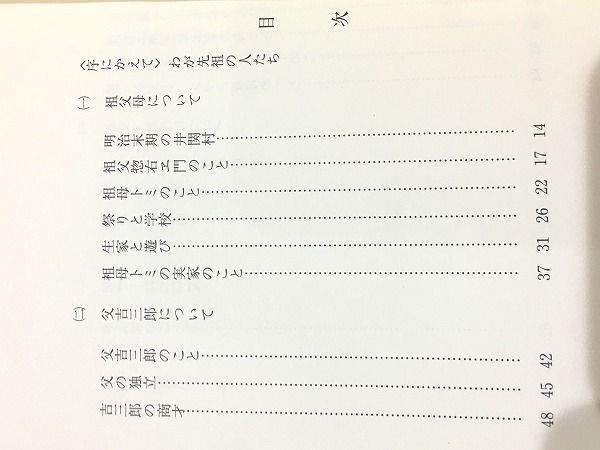 目次
〈序にかえて〉わが先祖の人たち
㈠ 祖父母について
明治末期の井関村……………………………… 14
祖父惣右ヱ門のこと……………………………… 17
祖母トミのこと……………………………… 22
祭りと学校……………………………… 26
生家と遊び……………………………… 31
祖母トミの実家のこと……………………………… 37
㈡ 父吉三郎について
父吉三郎のこと……………………………… 42
父の独立……………………………… 45
吉三郎の商才……………………………… 48